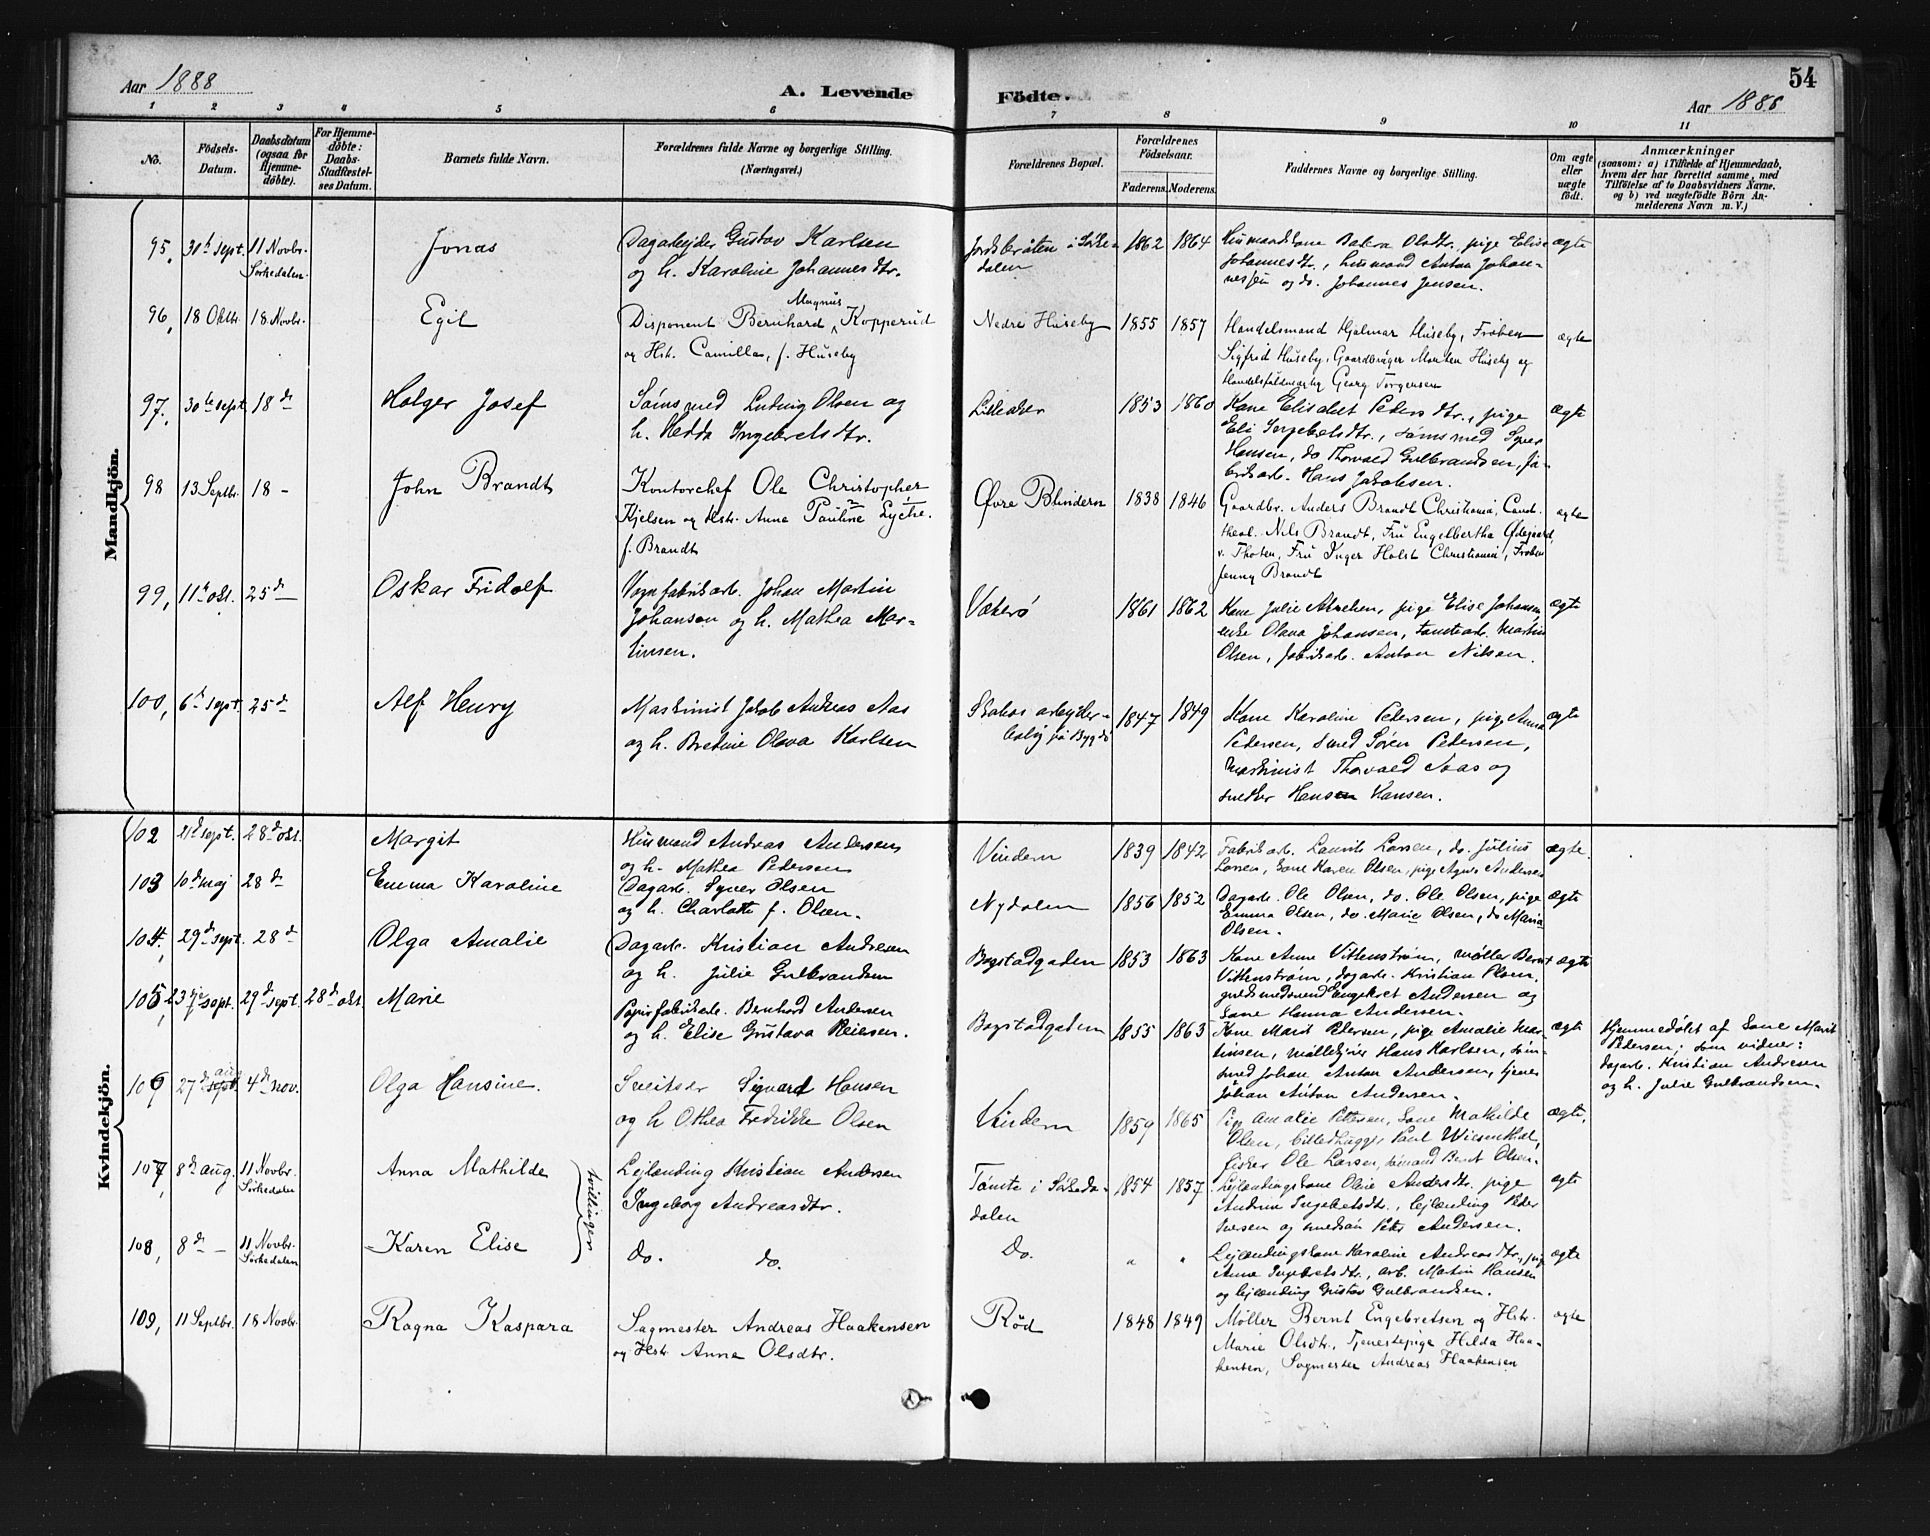 54
Aar 1888
A. Levende
Födte.
Aar 1888
1 2 3 4 5 6 7 8 9 10 11
No.
Födsels-
Datum.
Daabsdatum
(ogsaa for
Hjemme-
döbte).
For Hjemme-
döbte:
Daabs-
Stadfæstel-
ses Datum.
Barnets fulde Navn.
Forældrenes fulde Navne og borgerlige Stilling.
(Næringsvei.)
Forældrenes Bopæl.
Forældrenes
Födselsaar.
Faderens. Moderens.
Faddernes Navne og borgerlige Stilling.
Om ægte
eller
uægte
födt.
Anmærkninger
(saasom: a) i Tilfælde af Hjemmedaab,
hvem der har forrettet samme, med
Tilföielse af to Daabsvidners Navne.
og b) ved uægtefödte Börn An-
melderens Navn m. V.)
Mandkjön.
95, 30te sept. 11 Novbr.
Sørkedalen.
Jonas
Dagarbejder Gustav Karlsen
og h. Karoline Johannesdtr.
i Sørke-
dalen
1862 1864
Husmandskone Olsdtr., pige Elise
Johannesdtr., husmand Anton Johan-
nessen og do. Johannes Jensen.
ægte
96, 18 Oktbr. 18 Novbr.
Egil
Disponent Bernhard Magnus Kopperud
og Hst. Camilla, f. Huseby
Nedre Huseby
1855 1857
Handelsmand Hjalmar Huseby, Frøken
Sigfrid Huseby, Gaardbruger Morten Huseby og
Handelsfuldmægtig Georg Jørgensen
ægte
97, 30te sept. 18 d
Holger Josef
Sømsmed Ludvig Olsen og
h. Hedda Ingebretsdtr.
Lilleaker
1853 1860
Kone Elisabet Pedersdtr., pige
Eli Ingebretsdtr., sømsmed Syver
Hansen, do Thorvald Gulbrandsen, fa-
brikarb. Hans Jakobsen.
ægte
98 13 Septbr. 18 -
John Brandt
Kontorchef Ole Christopher
Kjelsen og Hstr. Anne Pauline Lyche.
f. Brandt
Øvre Blindern
1838 1846
Gaardbr. Anders Brandt Christiania, Cand.
theol. Nils Brandt, Fru Engelbertha Ødegaard,
v. Thoten, Fru Inger Holst Christiania, Frøken
Jenny Brandt
ægte
99, 11te okt. 25 d
Oskar Fridolf
Vognfabrikarb. Johan Martin
Johanson og h. Mathea Mar-
tinsen.
Vækerø
1861 1862
Kone Julie pige Elise Johansen,
enke Olava Johansen, Tomtearb. Martin
Olsen, fabrikarb. Anton Nilsen.
ægte
100, 6te sept. 25 d
Alf Henry
Maskinist Jakob Andreas Aas
og h. Bretine Olava Karlsen
arbejder-
bolig på Bygdø
1847 1849
Kone Karoline Pedersen, pige Anna
Pedersen, smed Søren Pedersen,
maskinist Thorvald Aas og
snedker Hansen Hansen.
ægte
Kvindekjön.
102 21de sept. 28de okt.
Margit
Husmand Andreas Andersen
og h. Mathea Pedersen
Vindern
1839 1842
Fabrikarb. Laurits Larsen, do. Julius
Larsen, kone Karen Olsen, pige Agnes Andersen
ægte.
103 10de maj 28 d
Emma Karoline
Dagarb. Syver Olsen
og h. Charlotte f. Olsen.
Nydalen
1856 1852
Dagarb. Ole Olsen, do. Ole Olsen, pige
Emma Olsen, do. Marie Olsen, do Maria
Olsen.
ægte
104, 29de sept. 28 d
Olga Amalie
Dagarb. Kristian Andresen
og h. Julie Gulbrandsen
Bogstadgaden
1853 1863
Kone Anne Vittenstrøm, møller Bernt
Vittenstrøm, dagarb. Kristian Olsen,
guldsmedsvend Engebret Andersen og
kone Hanna Andersen.
ægte
105, 23de sept. 29de sept. 28de okt.
Marie
Papirfabrikarb. Bernhard Andersen
og h. Elise Gustava Reiersen.
Bogstadgaden
1855 1863
Kone Marit Pedersen, pige Amalie Mar-
tinsen, møllekjører Hans Karlsen, søm-
smed Johan Anton Andersen, tjener
Johan Anton Andersen.
ægte
Hjemmedøbt af kone Marit
Pedersen; som vidner:
dagarb. Kristian Andresen
og h. Julie Gulbrandsen.
106 27de sept. aug. 4de nov.
Olga Hansine.
Sveitser Sigvard Hansen
og h. Othea Fredrikke Olsen
Vindern
1859 1865
Pige Amalie Petersen, kone Mathilde
Olsen, billedhugger Paul Wiesenthal,
fisker Ole Larsen, sømand Bernt Olsen.
ægte,
107, 8de aug. 11 Novbr.
Sørkedalen
Anna Mathilde
tvillinger
Lejlænding Kristian Andersen
Ingeborg Andreasdtr.
Tømte i Sørke-
dalen
1854 1857
Lejlændingskone Olia Andersdtr. pige
Andrea Ingebretsdtr., lejlænding Peder
Iversen og smedsøn Peter Andersen.
ægte
108, 8 d - 11 Novbr.
Sørkedalen
Karen Elise
do. do.
Do.
" "
Lejlændingskone Karoline Andreasdtr., pige
Anne Ingebretsdtr., arb. Martin Hansen
og lejlænding Gustav Gulbrandsen.
ægte
109, 11 Septbr. 18 Novbr.
Ragna Kaspara
Sagmester Andreas Haakensen
og Hstr Anne Olsdtr.
Rød
1848 1849
Møller Bernt Engebretsen og Hstr.
Marie Olsdtr., Tjenestepige Hilda Haa-
kensen, Sagmester Andreas Haakensen
ægte